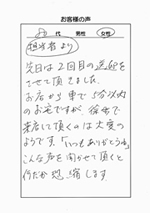 お客様の声
代 男性 女性
担当者より
先日は2回目の送邸を
させて頂きました。
お店から車で5分以内
のお宅ですが、徒歩で
来店して頂くのは大変の
ようです。「いつもありがとう」と
こんな声を聞かせて頂くと
何だか恐縮します。